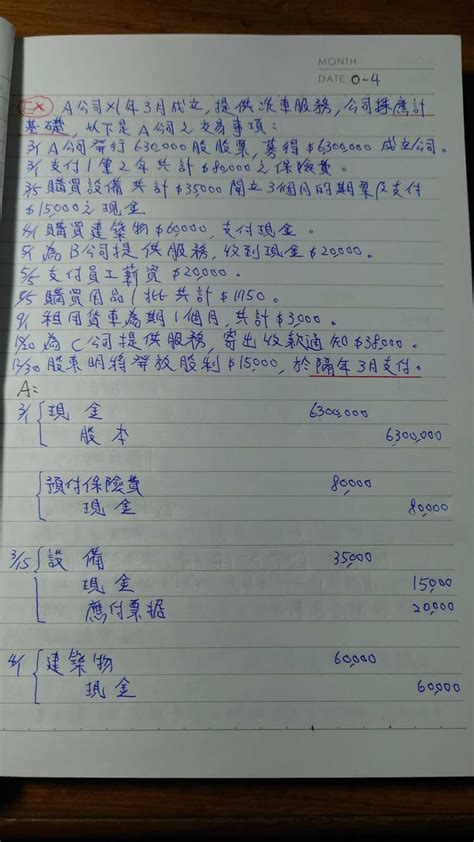 MONTH
DATE 0-4
EX A公司X1年3月成立，提供洗車服務，公司採應計
基礎，以下是A公司之交易事項：
3/1 A公司發行630,000股股票，募得$6,300,000成立公司。
3/1 支付1筆2年共計$80,000之保險費。
3/15 購買設備共計$35,000開立3個月的期票及支付
$15,000之現金
4/1 購買建築物$60,000，支付現金。
5/1 為B公司提供服務，收到現金$20,000。
5/5 支付員工薪資$20,000。
購買用品1批共計$1,950。
9/1 租用貨車為期1個月，共計$3,000。
為C公司提供服務，寄出收款通知$38,000。
12/30 股東明將發放股利$15,000，於隔年3月支付。
A:
3/1 現金 6,300,000
股本 6,300,000
預付保險費 80,000
現金 80,000
3/15 設備 35,000
現金 15,000
應付票據 20,000
4/1 建築物 60,000
現金 60,000